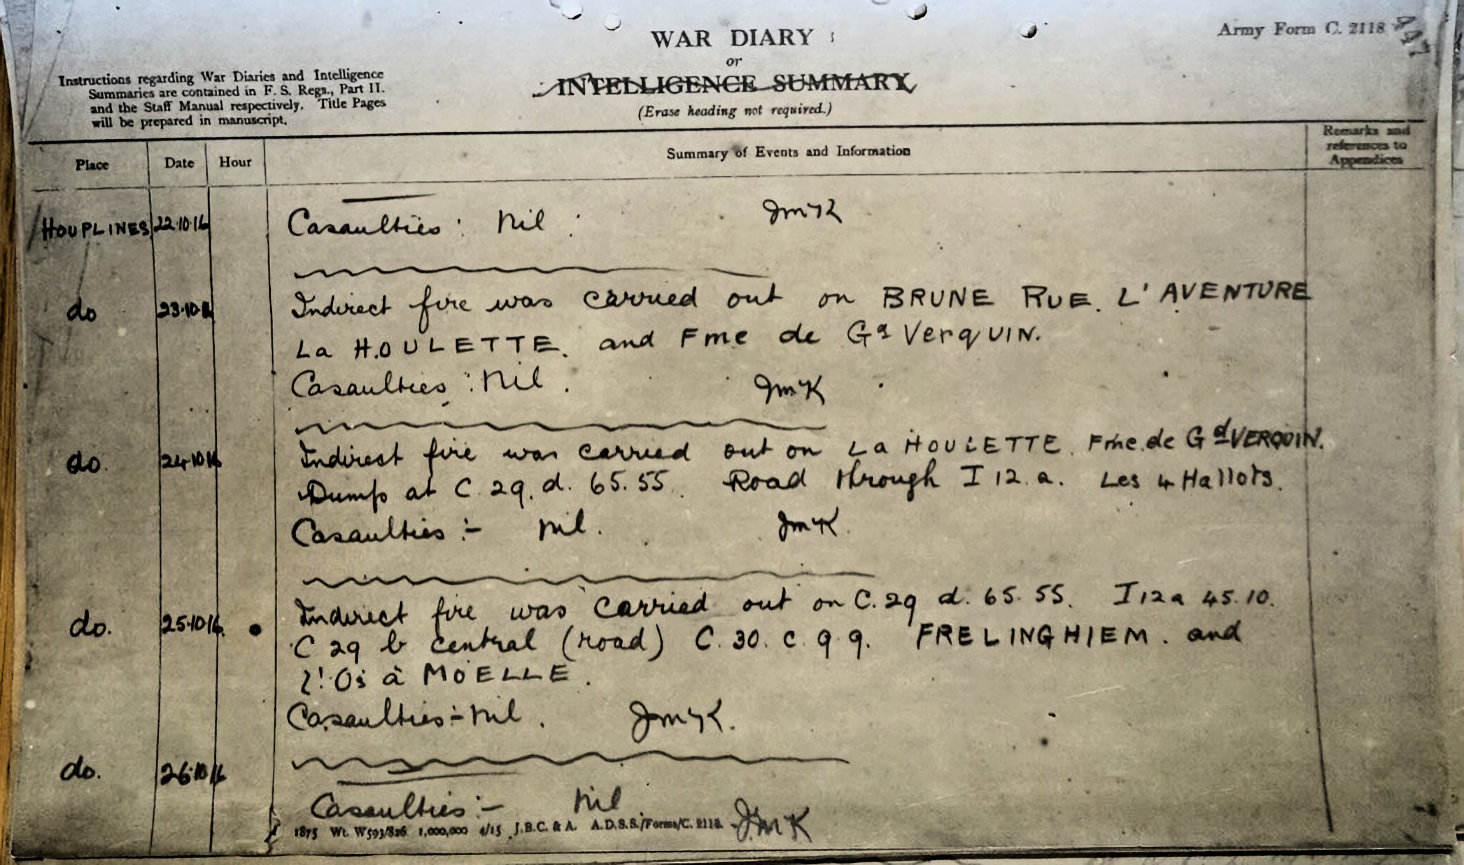 WAR DIARY
Army Form C. 2118
447
or
INTELLIGENCE SUMMARY
(Erase heading not required.)
Instructions regarding War Diaries and Intelligence
Summaries are contained in F. S. Regs., Part II.
and the Staff Manual respectively. Title Pages
will be prepared in manuscript.
Place Date Hour Summary of Events and Information Remarks and
references to
Appendices
HOUPLINES 22.10.16 Casaulties: Nil. JMK
do 23.10.16 Indirect fire was carried out on BRUNE RUE. L'AVENTURE
La HOULETTE. and Fme de Gd VerqUIN.
Casaulties: Nil. JMK
do. 24.10.16 Indirect fire was carried out on La HOULETTE. Fme. de Gd VERQUIN.
Dump at C. 29. d. 65.55. Road through I 12. a. Les 4 Hallots.
Casaulties:- Nil. JMK
do. 25.10.16. Indirect fire was carried out on C.29 d. 65.55. I 12 a 45.10.
C 29 b central (road) C. 30. c. 9 9. FRELINGHIEM. and
l'Os à MOELLE.
Casaulties:- Nil. JMK.
do. 26.10.16
Casaulties:- Nil. JMK
1875 Wt. W593/826 1,000,000 4/15 J.B.C. & A. A.D.S.S./Forms/C. 2118.